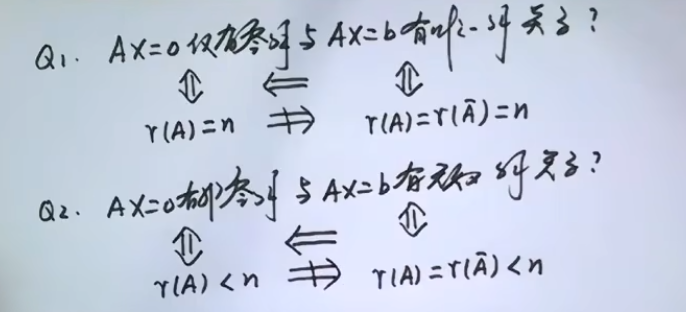 Q1. AX=0 仅有零解 与 AX=b 有唯一解 关系?
⇕ ⇐ ⇕
r(A)=n ⇏ r(A)=r(Ā)=n
Q2. AX=0 有非零解 与 AX=b 有无穷 解 关系?
⇕ ⇐ ⇕
r(A)<n ⇏ r(A)=r(Ā)<n